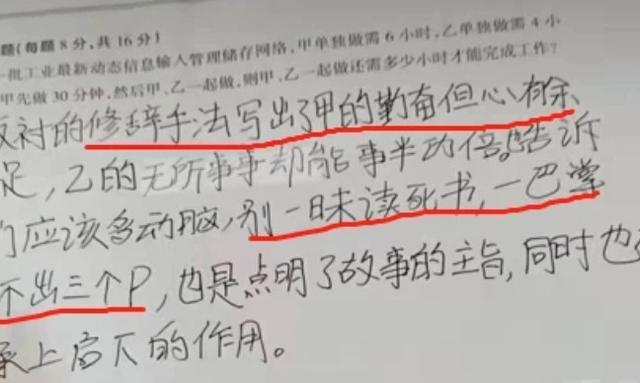 题(每题8分,共16分)
批工业最新动态信息输入管理储存网络,甲单独做需6小时,乙单独做需4小
甲先做30分钟,然后甲、乙一起做,则甲、乙一起做还需多少小时才能完成工作?
反衬的修辞手法写出了甲的勤奋但心有余
足,乙的无所事事却能事半功倍。告诉
们应该多动脑,别一昧读死书,一巴掌
不出三个P,也是点明了故事的主旨,同时也
承上启下的作用。